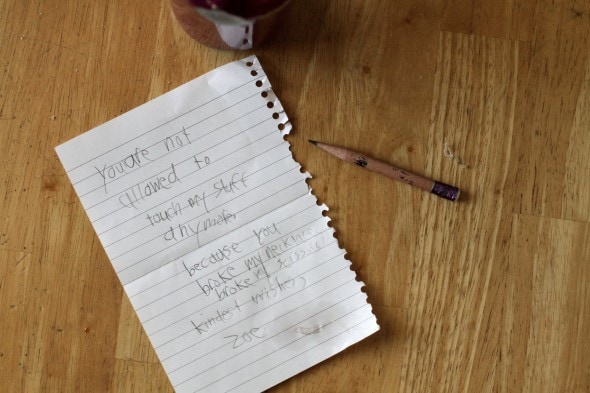 you are not
allowed to
touch my stuff
anymore
because you
broke my necklace
broke my scissors
kindest wishers
zoe